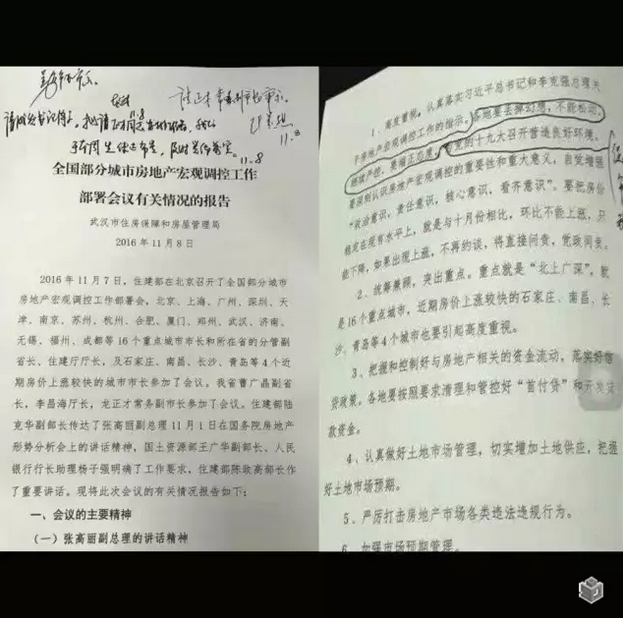 11.8
11.8
全国部分城市房地产宏观调控工作
部署会议有关情况的报告
武汉市住房保障和房屋管理局
2016 年 11 月 8 日
2016 年 11 月 7 日，住建部在北京召开了全国部分城市
房地产宏观调控工作部署会，北京、上海、广州、深圳、天
津、南京、苏州、杭州、合肥、厦门、郑州、武汉、济南、
无锡、福州、成都等 16 个重点城市市长和所在省的分管副
省长、住建厅厅长，及石家庄、南昌、长沙、青岛等 4 个近
期房价上涨较快的城市市长参加了会议。我省曹广晶副省
长，李昌海厅长，龙正才常务副市长参加了会议。住建部陆
克华副部长传达了张高丽副总理 11 月 1 日在国务院房地产
形势分析会上的讲话精神，国土资源部王广华副部长、人民
银行行长助理杨子强明确了工作要求，住建部陈政高部长作
了重要讲话。现将此次会议的有关情况报告如下：
一、会议的主要精神
（一）张高丽副总理的讲话精神
1、高度重视，认真落实习近平总书记和李克强总理关
于房地产宏观调控工作的指示。各地要丢掉幻想，不能松动，
继续严控，要端正态度，为党的十九大召开营造良好环境。
要深刻认识房地产宏观调控的重要性和重大意义，自觉增强
“政治意识，责任意识，核心意识，看齐意识”。要把房价
稳定在现有水平上，就是与十月份相比，环比不能上涨，只
能下降，如果出现上涨，不再约谈，将直接问责，党政同责。
2、统筹兼顾，突出重点。重点就是“北上广深”，就
是 16 个重点城市，近期房价上涨较快的石家庄、南昌、长
沙、青岛等 4 个城市也要引起高度重视。
3、把握和控制好与房地产相关的资金流动，落实好信
贷政策。各地要按照要求清理和管控好“首付贷”和开发贷
款资金。
4、认真做好土地市场管理，切实增加土地供应，把握
好土地市场预期。
5、严厉打击房地产市场各类违法违规行为。
6、加强市场预期管理。